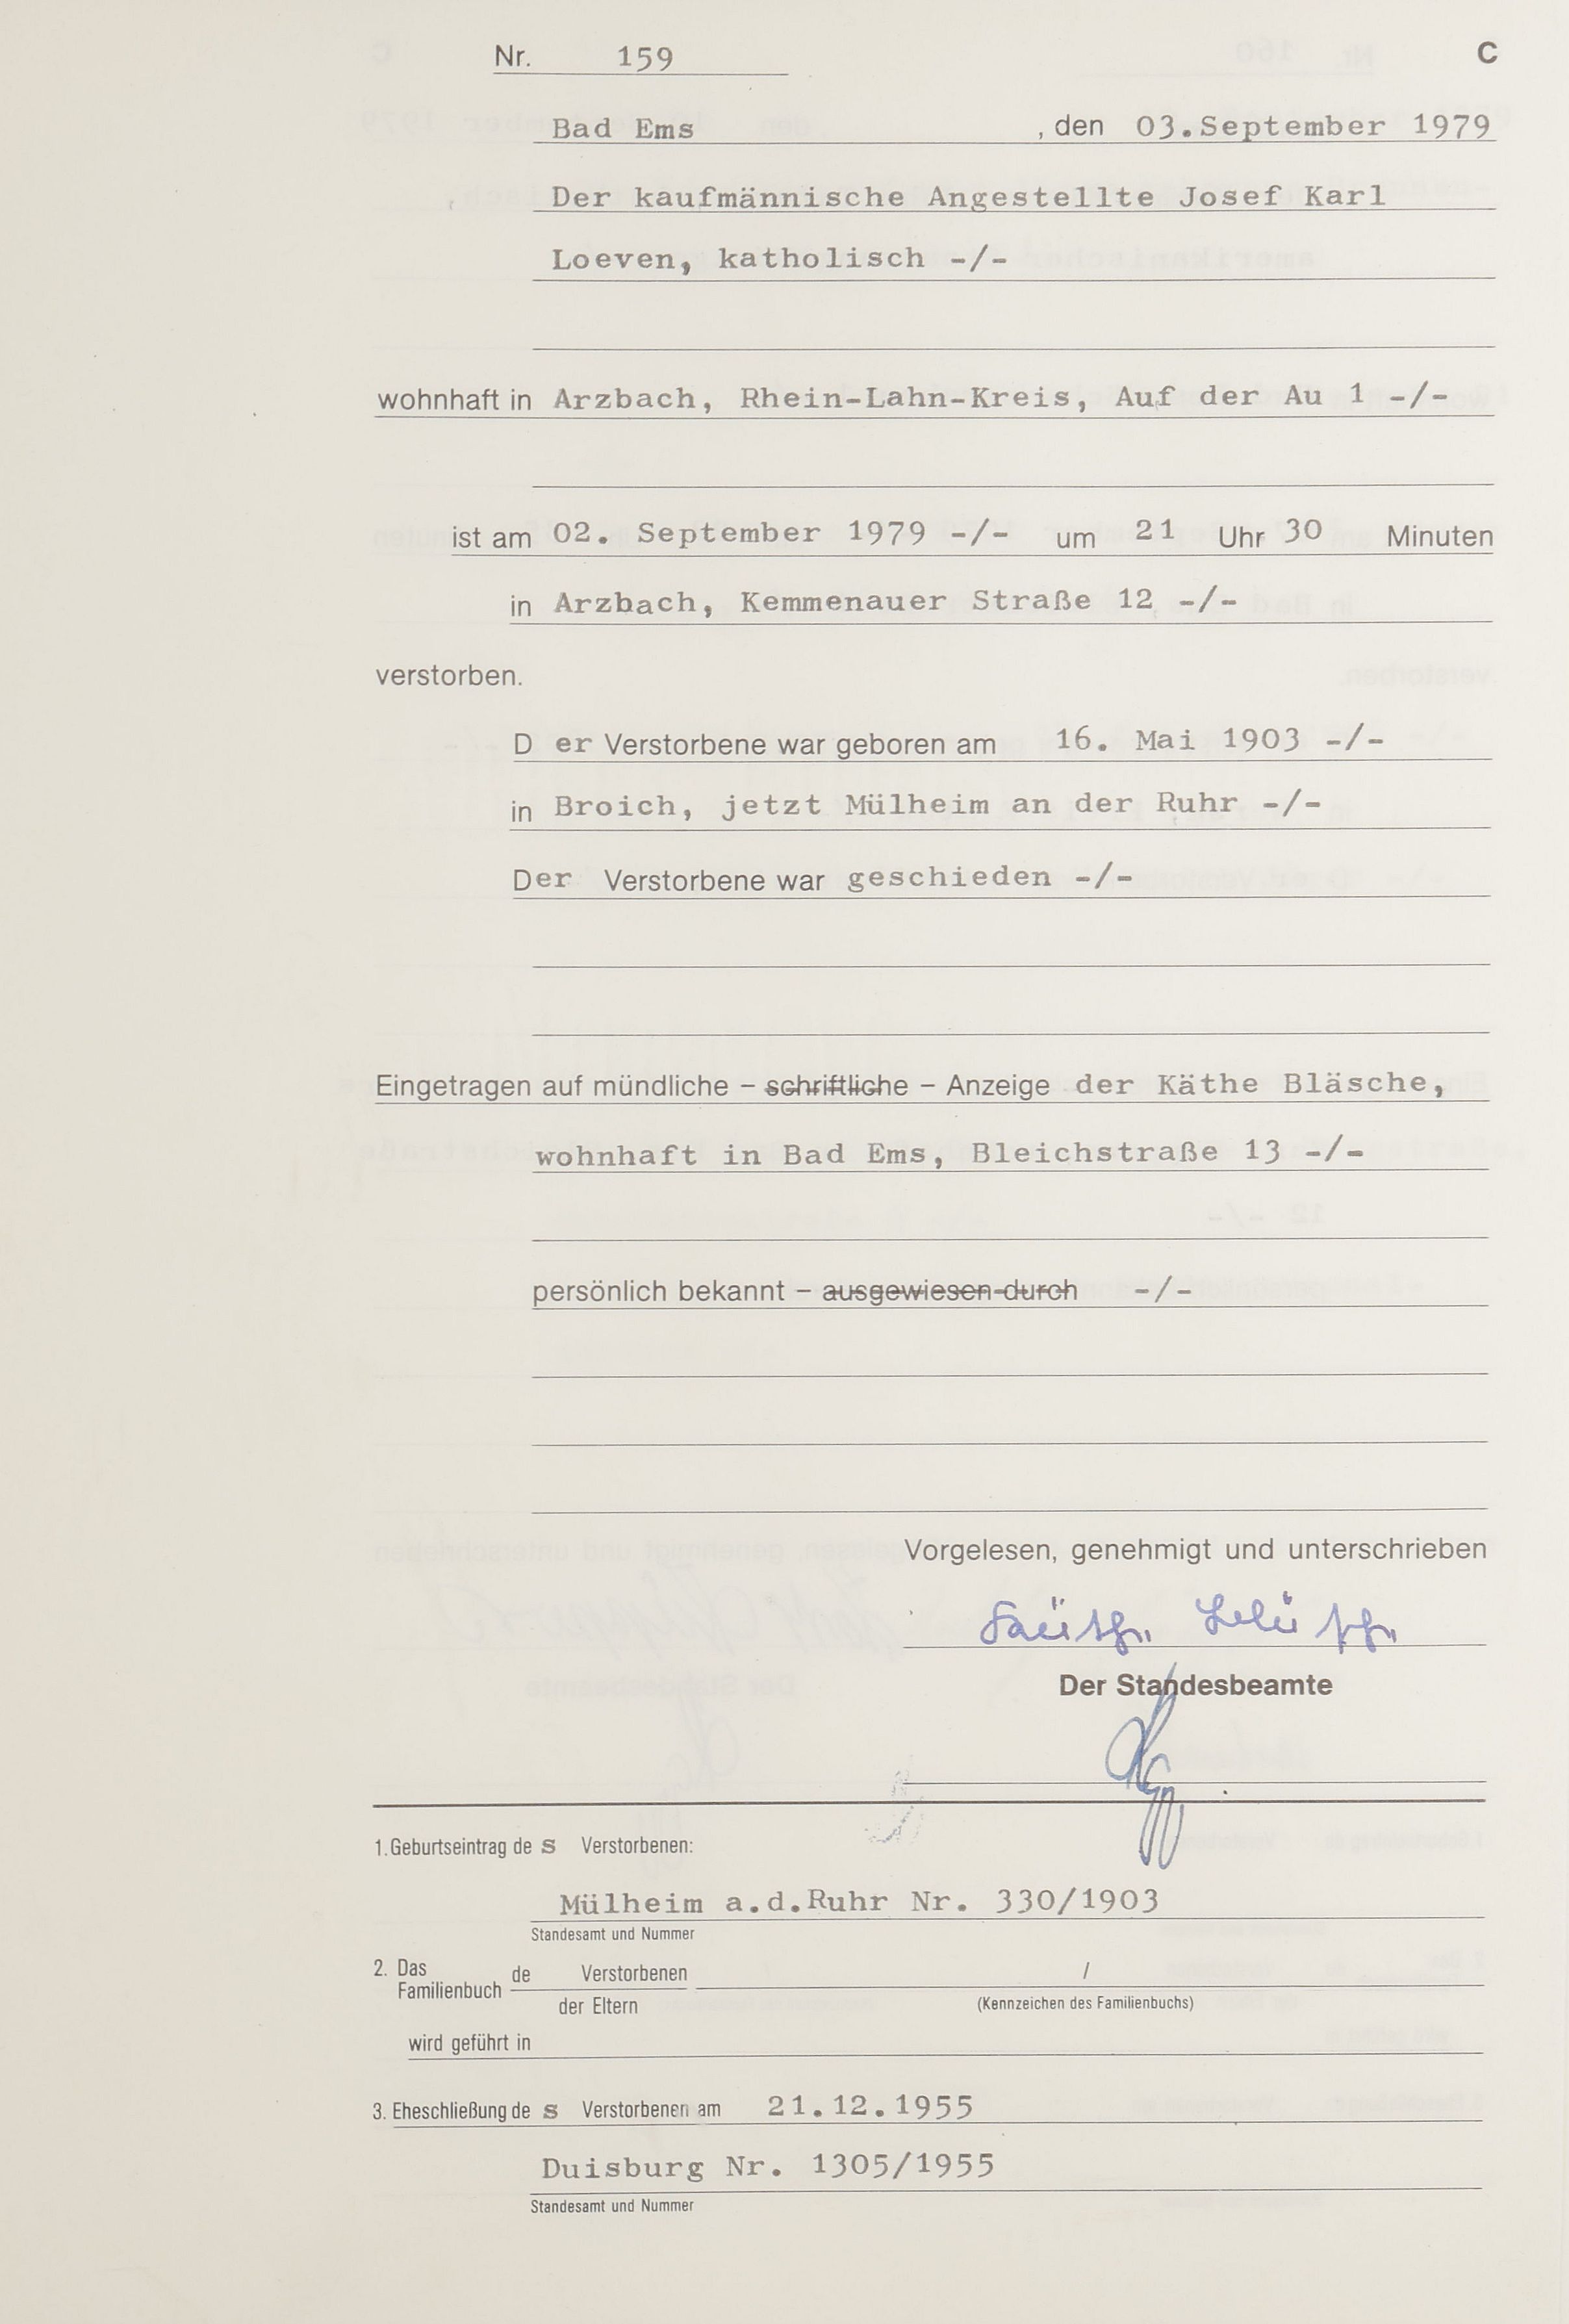 Nr. 159 C
Bad Ems , den 03.September 1979
Der kaufmännische Angestellte Josef Karl
Loeven, katholisch -/-
wohnhaft in Arzbach, Rhein-Lahn-Kreis, Auf der Au 1 -/-
ist am 02. September 1979 -/- um 21 Uhr 30 Minuten
in Arzbach, Kemmenauer Straße 12 -/-
verstorben.
D er Verstorbene war geboren am 16. Mai 1903 -/-
in Broich, jetzt Mülheim an der Ruhr -/-
Der Verstorbene war geschieden -/-
Eingetragen auf mündliche – schriftliche – Anzeige der Käthe Bläsche,
wohnhaft in Bad Ems, Bleichstraße 13 -/-
persönlich bekannt – ausgewiesen durch -/-
Vorgelesen, genehmigt und unterschrieben
Der Standesbeamte
1. Geburtseintrag de s Verstorbenen:
Mülheim a.d.Ruhr Nr. 330/1903
Standesamt und Nummer
2. Das Familienbuch de Verstorbenen /
der Eltern (Kennzeichen des Familienbuchs)
wird geführt in
3. Eheschließung de s Verstorbenen am 21.12.1955
Duisburg Nr. 1305/1955
Standesamt und Nummer